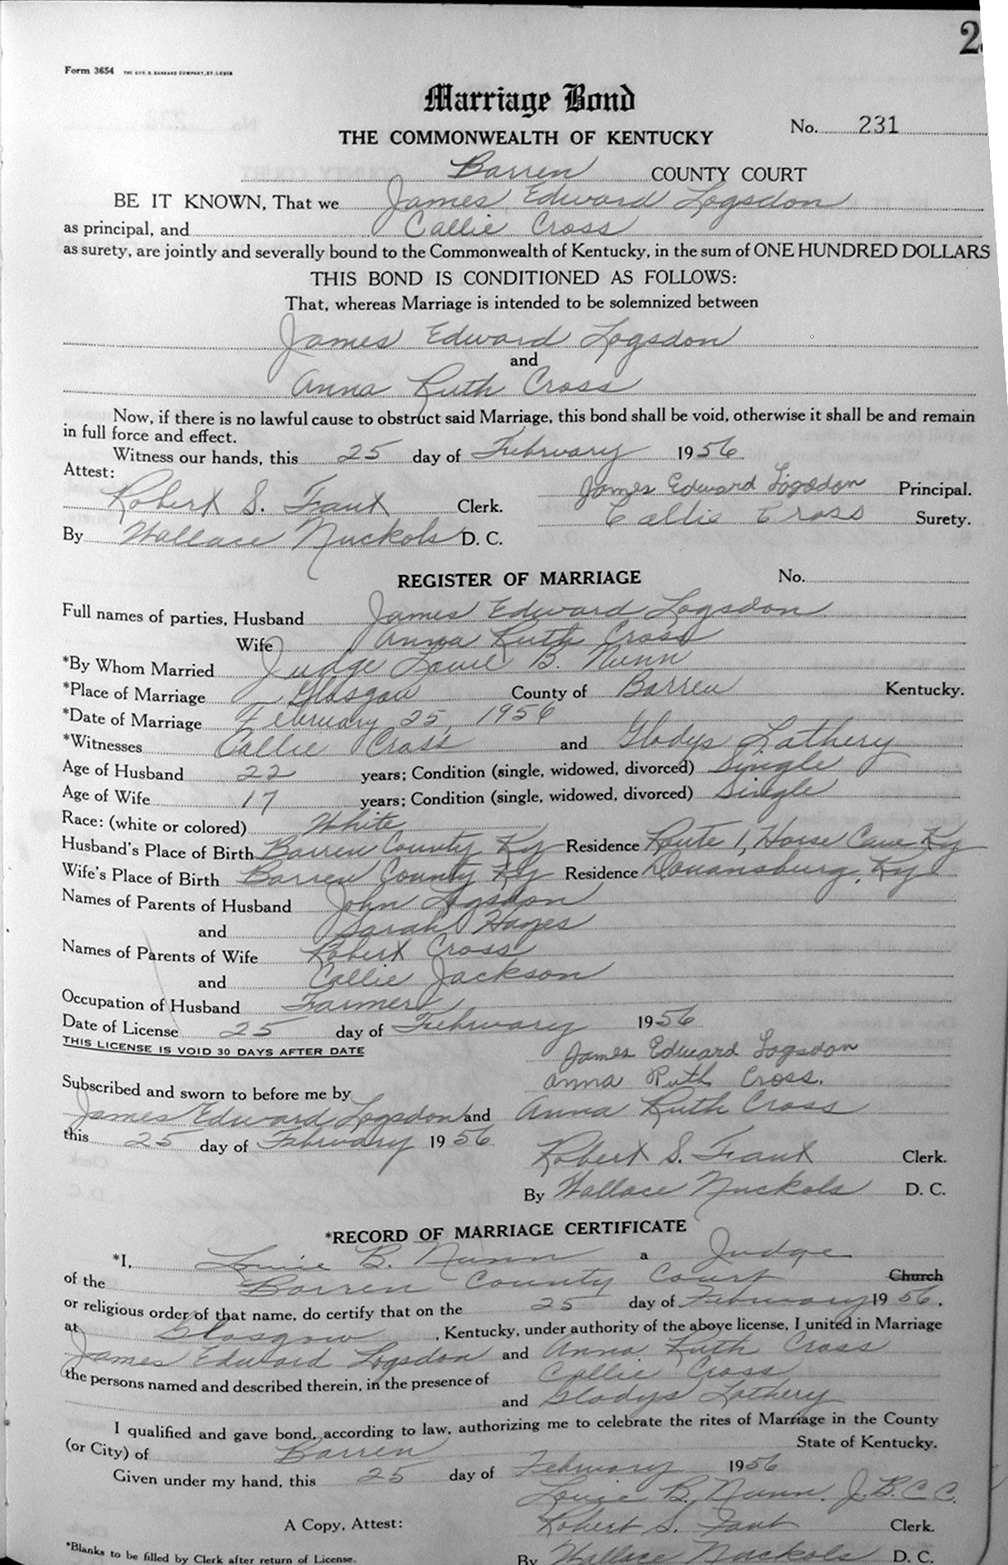 2
Form 3654 THE GEO. D. BARNARD COMPANY, ST. LOUIS
Marriage Bond
No. 231
THE COMMONWEALTH OF KENTUCKY
Barren COUNTY COURT
BE IT KNOWN, That we James Edward Logsdon
as principal, and Callie Cross
as surety, are jointly and severally bound to the Commonwealth of Kentucky, in the sum of ONE HUNDRED DOLLARS
THIS BOND IS CONDITIONED AS FOLLOWS:
That, whereas Marriage is intended to be solemnized between
James Edward Logsdon
and
Anna Ruth Cross
Now, if there is no lawful cause to obstruct said Marriage, this bond shall be void, otherwise it shall be and remain
in full force and effect.
Witness our hands, this 25 day of February 1956
Attest: James Edward Logsdon Principal.
Robert S. Fant Clerk.
Callie Cross Surety.
By Wallace Nuckols D. C.
REGISTER OF MARRIAGE No.
Full names of parties, Husband James Edward Logsdon
Wife Anna Ruth Cross
*By Whom Married Judge Louie B. Nunn
*Place of Marriage Glasgow County of Barren Kentucky.
*Date of Marriage February 25, 1956
*Witnesses Callie Cross and Gladys Lathery
Age of Husband 22 years; Condition (single, widowed, divorced) Single
Age of Wife 17 years; Condition (single, widowed, divorced) Single
Race: (white or colored) White
Husband's Place of Birth Barren County Ky Residence Route 1, Horse Cave Ky
Wife's Place of Birth Barren County Ky Residence Donansburg, Ky
Names of Parents of Husband John Logsdon
and Sarah Hayes
Names of Parents of Wife Robert Cross
and Callie Jackson
Occupation of Husband Farmer
Date of License 25 day of February 1956
THIS LICENSE IS VOID 30 DAYS AFTER DATE
James Edward Logsdon
Anna Ruth Cross.
Subscribed and sworn to before me by
James Edward Logsdon and Anna Ruth Cross
this 25 day of February 1956
Robert S. Fant Clerk.
By Wallace Nuckols D. C.
*RECORD OF MARRIAGE CERTIFICATE
*I, Louie B. Nunn a Judge
of the Barren County Court Church
or religious order of that name, do certify that on the 25 day of February 1956.
at Glasgow, Kentucky, under authority of the above license, I united in Marriage
James Edward Logsdon and Anna Ruth Cross
the persons named and described therein, in the presence of Callie Cross
and Gladys Lathery
I qualified and gave bond, according to law, authorizing me to celebrate the rites of Marriage in the County
(or City) of Barren State of Kentucky.
Given under my hand, this 25 day of February 1956
Louie B. Nunn. J. B. C. C.
A Copy, Attest: Robert S. Fant Clerk.
*Blanks to be filled by Clerk after return of License.
By Wallace Nuckols D. C.